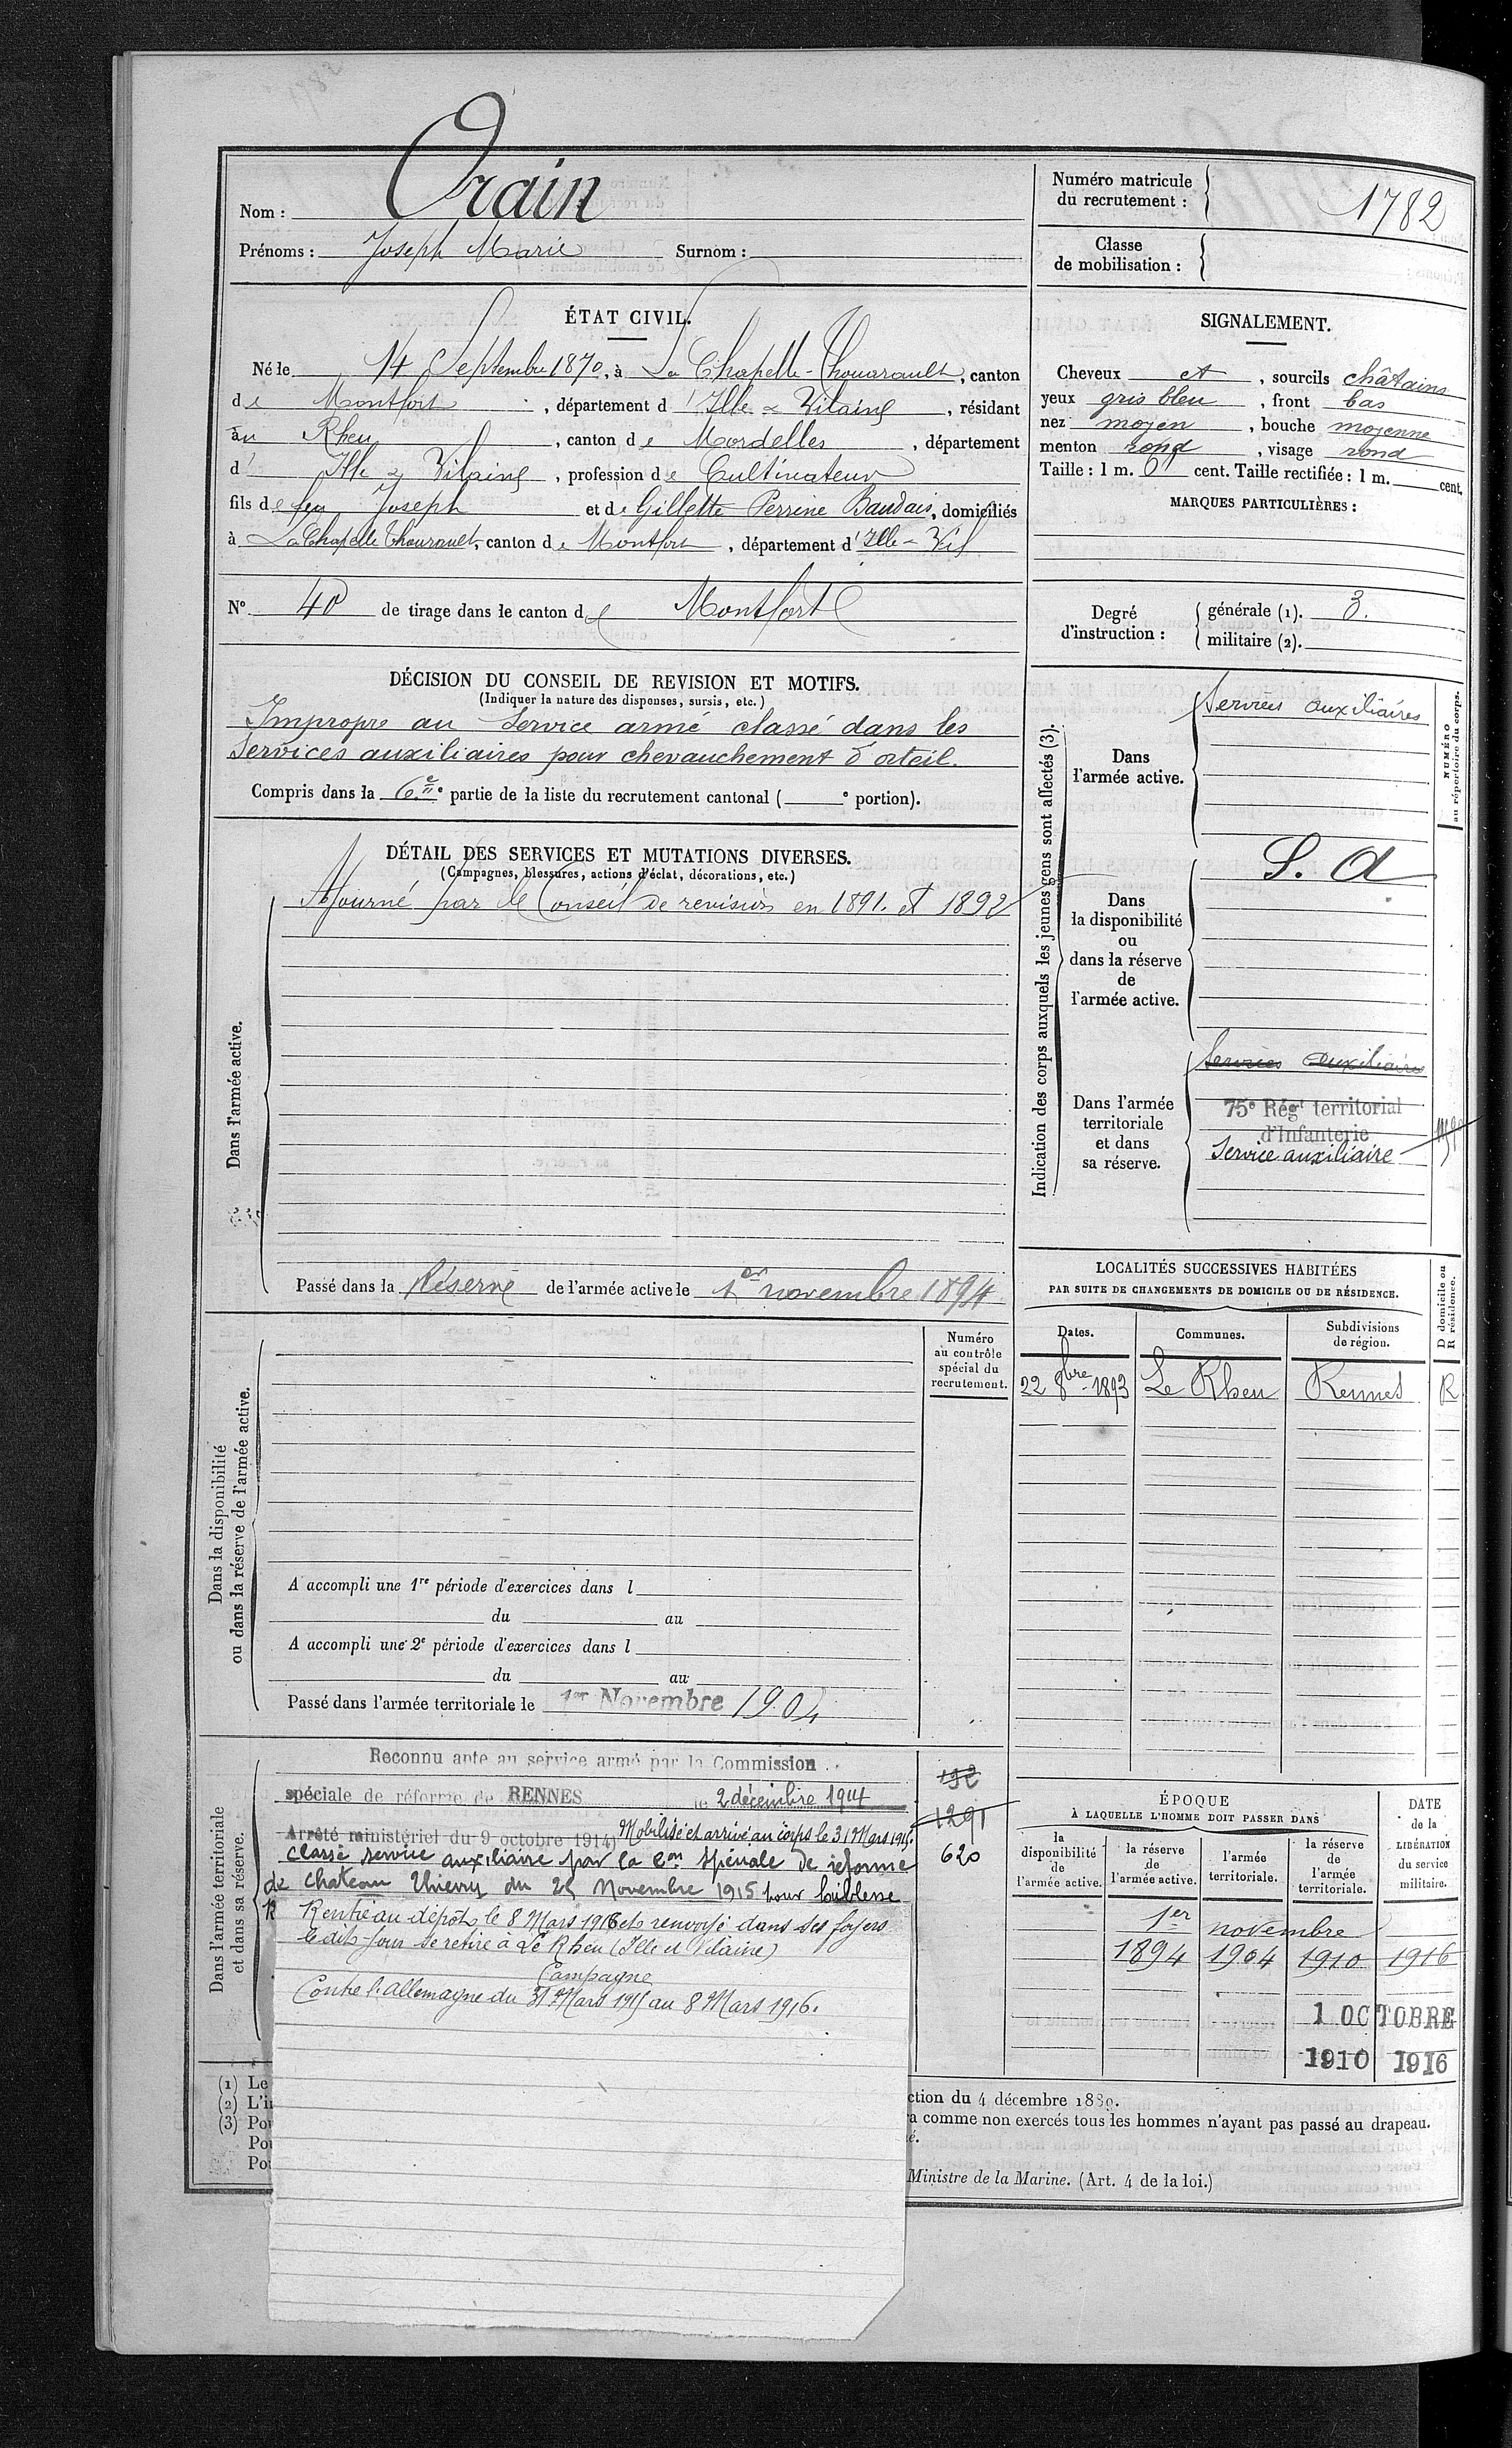 Nom : Orain
Prénoms : Joseph Marie Surnom :
Numéro matricule
du recrutement : 1782
Classe
de mobilisation :
ÉTAT CIVIL.
Né le 14 Septembre 1870, à La Chapelle-Thouarault, canton
de Montfort, département d'Ille & Vilaine, résidant
au Rheu, canton de Mordelles, département
d' Ille & Vilaine, profession de Cultivateur
fils de feu Joseph et de Gillette Perrine Baudais, domiciliés
à La Chapelle Thouarault, canton de Montfort, département d'Ille-Vil
N° 40 de tirage dans le canton de Montfort
SIGNALEMENT.
Cheveux et, sourcils châtains
yeux gris bleu, front bas
nez moyen, bouche moyenne
menton rond, visage rond
Taille : 1 m. 6 cent. Taille rectifiée : 1 m. cent.
MARQUES PARTICULIÈRES :
Degré
d'instruction :
générale (1). 3.
militaire (2).
DÉCISION DU CONSEIL DE REVISION ET MOTIFS.
(Indiquer la nature des dispenses, sursis, etc.)
Impropre au Service armé classé dans les
Services auxiliaires pour chevauchement d'orteil.
Compris dans la 6e partie de la liste du recrutement cantonal ( e portion).
DÉTAIL DES SERVICES ET MUTATIONS DIVERSES.
(Campagnes, blessures, actions d'éclat, décorations, etc.)
Dans l'armée active.
Ajourné par le Conseil de revision en 1891. et 1892
Passé dans la Réserve de l'armée active le 1er novembre 1894
Indication des corps auxquels les jeunes gens sont affectés (3).
NUMÉRO
au répertoire du corps.
Dans
l'armée active.
Services auxiliaires
Dans
la disponibilité
ou
dans la réserve
de
l'armée active.
S. A
Dans l'armée
territoriale
et dans
sa réserve.
Services auxiliaires
75e Régt territorial
d'Infanterie
Service auxiliaire
LOCALITÉS SUCCESSIVES HABITÉES
PAR SUITE DE CHANGEMENTS DE DOMICILE OU DE RÉSIDENCE.
D domicile ou
R résidence.
Dates. Communes. Subdivisions
de région.
22 8bre 1893 Le Rheu Rennes R
Dans la disponibilité
ou dans la réserve de l'armée active.
Numéro
au contrôle
spécial du
recrutement.
A accompli une 1re période d'exercices dans l
du au
A accompli une 2e période d'exercices dans l
du au
Passé dans l'armée territoriale le 1er Novembre 1904
Dans l'armée territoriale
et dans sa réserve.
Reconnu apte au service armé par la Commission
spéciale de réforme de RENNES le 2 décembre 1914
Arrêté ministériel du 9 octobre 1914) Mobilisé et arrivé au corps le 31 Mars 1915.
Classé service auxiliaire par la Con Spéciale de réforme
de Chateau Thierry du 25 Novembre 1915 pour faiblesse
Rentré au dépôt le 8 Mars 1916 et renvoyé dans ses foyers
ledit jour se retire à Le Rheu (Ille et Vilaine)
Campagne
Contre l'Allemagne du 31 Mars 1915 au 8 Mars 1916.
1291
620
ÉPOQUE
À LAQUELLE L'HOMME DOIT PASSER DANS
DATE
de la
LIBÉRATION
du service
militaire.
la
disponibilité
de
l'armée active.
la réserve
de
l'armée active.
l'armée
territoriale.
la réserve
de
l'armée
territoriale.
1er novembre
1894 1904 1910 1916
1 OCTOBRE
1910 1916
(1) Le
(2) L'in
(3) Pou
Pou
Pou
ction du 4 décembre 1889.
a comme non exercés tous les hommes n'ayant pas passé au drapeau.
é.
Ministre de la Marine. (Art. 4 de la loi.)